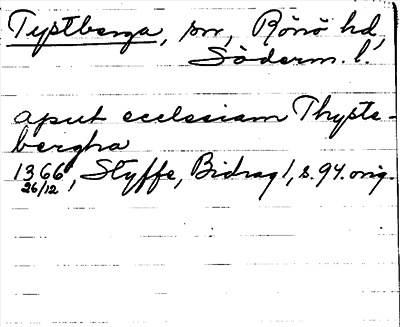 Tystberga, sn, Rönö hd,
Söderm. l.
aput ecclesiam Thysts-
bergha
1366 26/12, Styffe, Bidrag 1, s. 94. orig.